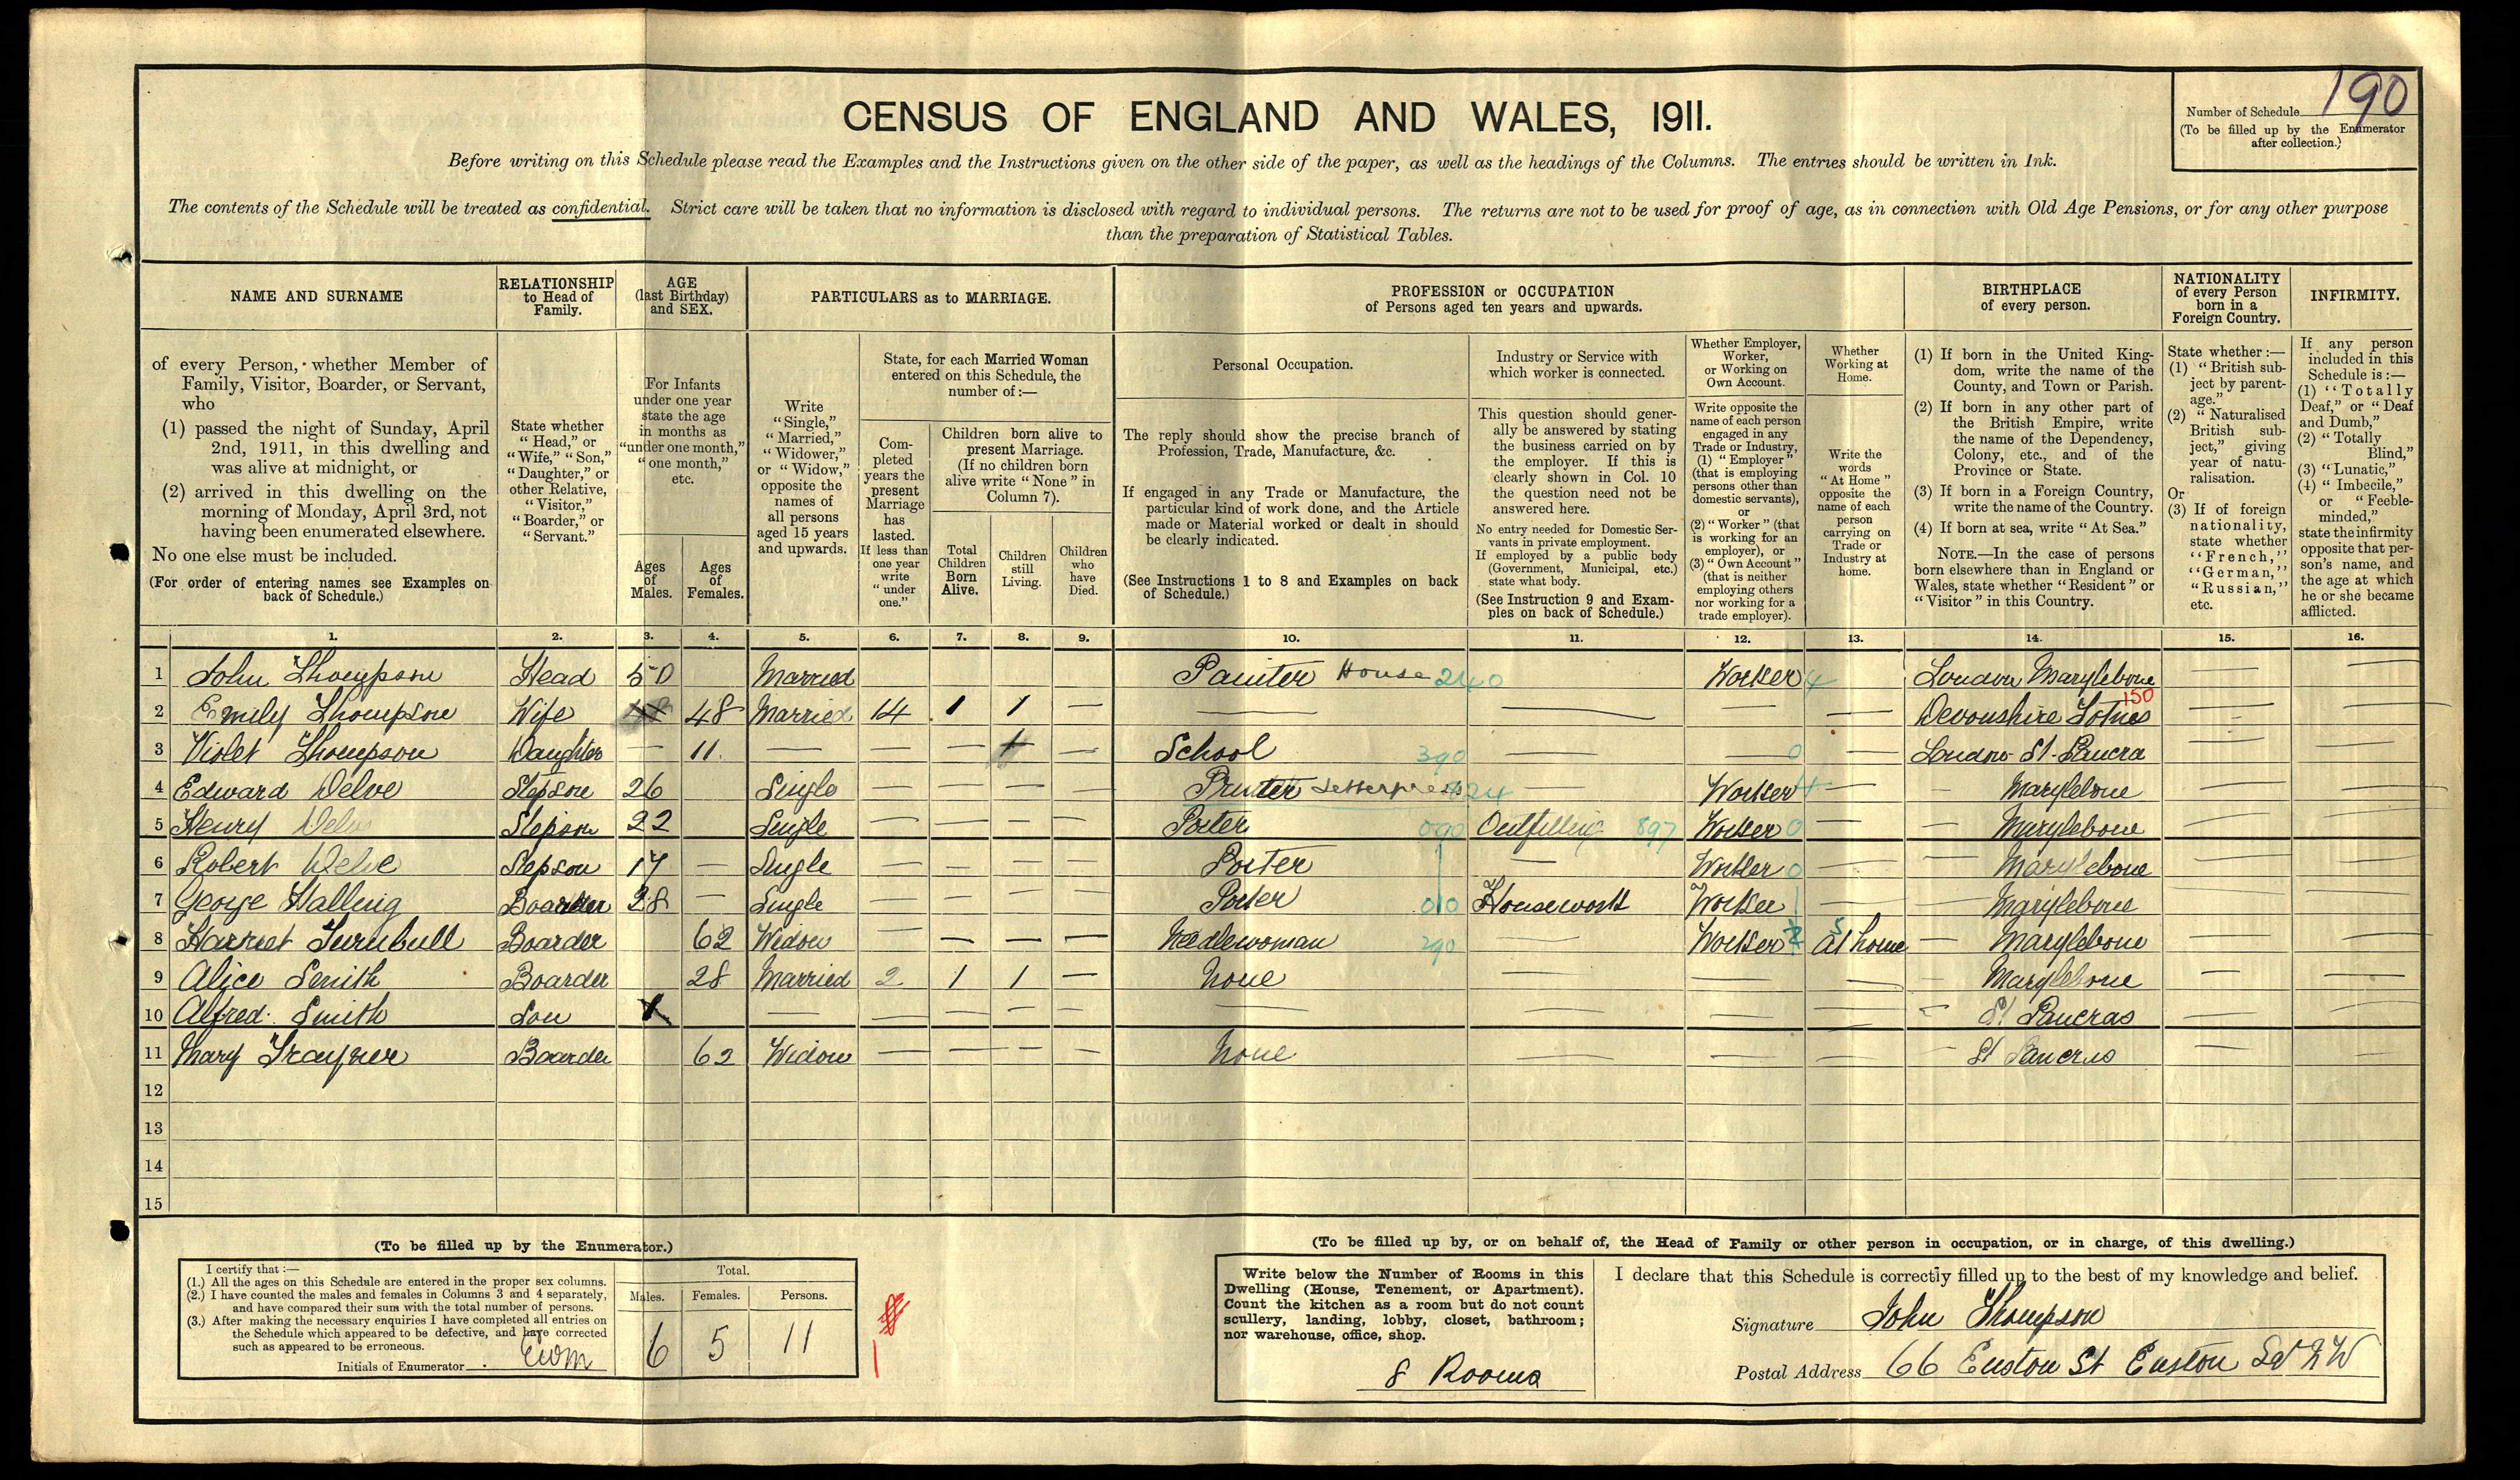 190
Number of Schedule
(To be filled up by the Enumerator
after collection.)
CENSUS OF ENGLAND AND WALES, 1911.
Before writing on this Schedule please read the Examples and the Instructions given on the other side of the paper, as well as the headings of the Columns. The entries should be written in Ink.
The contents of the Schedule will be treated as confidential. Strict care will be taken that no information is disclosed with regard to individual persons. The returns are not to be used for proof of age, as in connection with Old Age Pensions, or for any other purpose
than the preparation of Statistical Tables.
NAME AND SURNAME
of every Person, whether Member of
Family, Visitor, Boarder, or Servant,
who
(1) passed the night of Sunday, April
2nd, 1911, in this dwelling and
was alive at midnight, or
(2) arrived in this dwelling on the
morning of Monday, April 3rd, not
having been enumerated elsewhere.
No one else must be included.
(For order of entering names see Examples on
back of Schedule.)
RELATIONSHIP
to Head of
Family.
State whether
"Head," or
"Wife," "Son,"
"Daughter," or
other Relative,
"Visitor,"
"Boarder," or
"Servant."
AGE
(last Birthday)
and SEX.
For Infants
under one year
state the age
in months as
"under one month,"
"one month,"
etc.
Ages
of
Males.
Ages
of
Females.
PARTICULARS as to MARRIAGE.
Write
"Single,"
"Married,"
"Widower,"
or "Widow,"
opposite the
names of
all persons
aged 15 years
and upwards.
State, for each Married Woman
entered on this Schedule, the
number of:—
Com-
pleted
years the
present
Marriage
has
lasted.
If less than
one year
write
"under
one."
Children born alive to
present Marriage.
(If no children born
alive write "None" in
Column 7).
Total
Children
Born
Alive.
Children
still
Living.
Children
who
have
Died.
PROFESSION or OCCUPATION
of Persons aged ten years and upwards.
Personal Occupation.
The reply should show the precise branch of
Profession, Trade, Manufacture, &c.
If engaged in any Trade or Manufacture, the
particular kind of work done, and the Article
made or Material worked or dealt in should
be clearly indicated.
(See Instructions 1 to 8 and Examples on back
of Schedule.)
Industry or Service with
which worker is connected.
This question should gener-
ally be answered by stating
the business carried on by
the employer. If this is
clearly shown in Col. 10
the question need not be
answered here.
No entry needed for Domestic Ser-
vants in private employment.
If employed by a public body
(Government, Municipal, etc.)
state what body.
(See Instruction 9 and Exam-
ples on back of Schedule.)
Whether Employer,
Worker,
or Working on
Own Account.
Write opposite the
name of each person
engaged in any
Trade or Industry,
(1) "Employer"
(that is employing
persons other than
domestic servants),
or
(2) "Worker" (that
is working for an
employer), or
(3) "Own Account"
(that is neither
employing others
nor working for a
trade employer).
Whether
Working at
Home.
Write the
words
"At Home"
opposite the
name of each
person
carrying on
Trade or
Industry at
home.
BIRTHPLACE
of every person.
(1) If born in the United King-
dom, write the name of the
County, and Town or Parish.
(2) If born in any other part of
the British Empire, write
the name of the Dependency,
Colony, etc., and of the
Province or State.
(3) If born in a Foreign Country,
write the name of the Country.
(4) If born at sea, write "At Sea."
NOTE.—In the case of persons
born elsewhere than in England or
Wales, state whether "Resident" or
"Visitor" in this Country.
NATIONALITY
of every Person
born in a
Foreign Country.
State whether:—
(1) "British sub-
ject by parent-
age."
(2) "Naturalised
British sub-
ject," giving
year of natu-
ralisation.
Or
(3) If of foreign
nationality,
state whether
"French,"
"German,"
"Russian,"
etc.
INFIRMITY.
If any person
included in this
Schedule is:—
(1) "Totally
Deaf," or "Deaf
and Dumb,"
(2) "Totally
Blind,"
(3) "Lunatic,"
(4) "Imbecile,"
or "Feeble-
minded,"
state the infirmity
opposite that per-
son's name, and
the age at which
he or she became
afflicted.
1. 2. 3. 4. 5. 6. 7. 8. 9. 10. 11. 12. 13. 14. 15. 16.
1 John Thompson Head 50 Married Painter House 240 Worker 4 London Marylebone
2 Emily Thompson Wife 48 Married 14 1 1 — — — — — Devonshire Totnes 150 — —
3 Violet Thompson Daughter — 11. — — — — School 390 — 0 — London St. Pancra — —
4 Edward Delve Stepson 26 Single — — — — Printer Letterpress 824 — Worker 4 — Marylebone — —
5 Henry Delve Stepson 22 Single — — — — Porter 090 Outfitting 897 Worker 0 — Marylebone — —
6 Robert Delve Stepson 17 — Single — — — — Porter — Worker 0 — Marylebone — —
7 George Halling Boarder 28 — Single — — — — Porter 010 Housework Worker 1 — Marylebone — —
8 Harriet Turnbull Boarder 62 Widow — — — — Needlewoman 290 — Worker 5 At home — Marylebone — —
9 Alice Smith Boarder 28 Married 2 1 1 — None — — — Marylebone — —
10 Alfred Smith Son — — — — — — — — — St Pancras — —
11 Mary Trayner Boarder 62 Widow — — — — None — — — St Pancras — —
12
13
14
15
(To be filled up by the Enumerator.)
I certify that:—
(1.) All the ages on this Schedule are entered in the proper sex columns.
(2.) I have counted the males and females in Columns 3 and 4 separately,
and have compared their sum with the total number of persons.
(3.) After making the necessary enquiries I have completed all entries on
the Schedule which appeared to be defective, and have corrected
such as appeared to be erroneous.
Initials of Enumerator
Total.
Males. Females. Persons.
6 5 11
(To be filled up by, or on behalf of, the Head of Family or other person in occupation, or in charge, of this dwelling.)
Write below the Number of Rooms in this
Dwelling (House, Tenement, or Apartment).
Count the kitchen as a room but do not count
scullery, landing, lobby, closet, bathroom;
nor warehouse, office, shop.
8 Rooms
I declare that this Schedule is correctly filled up to the best of my knowledge and belief.
Signature John Thompson
Postal Address 66 Euston St Euston Sq NW